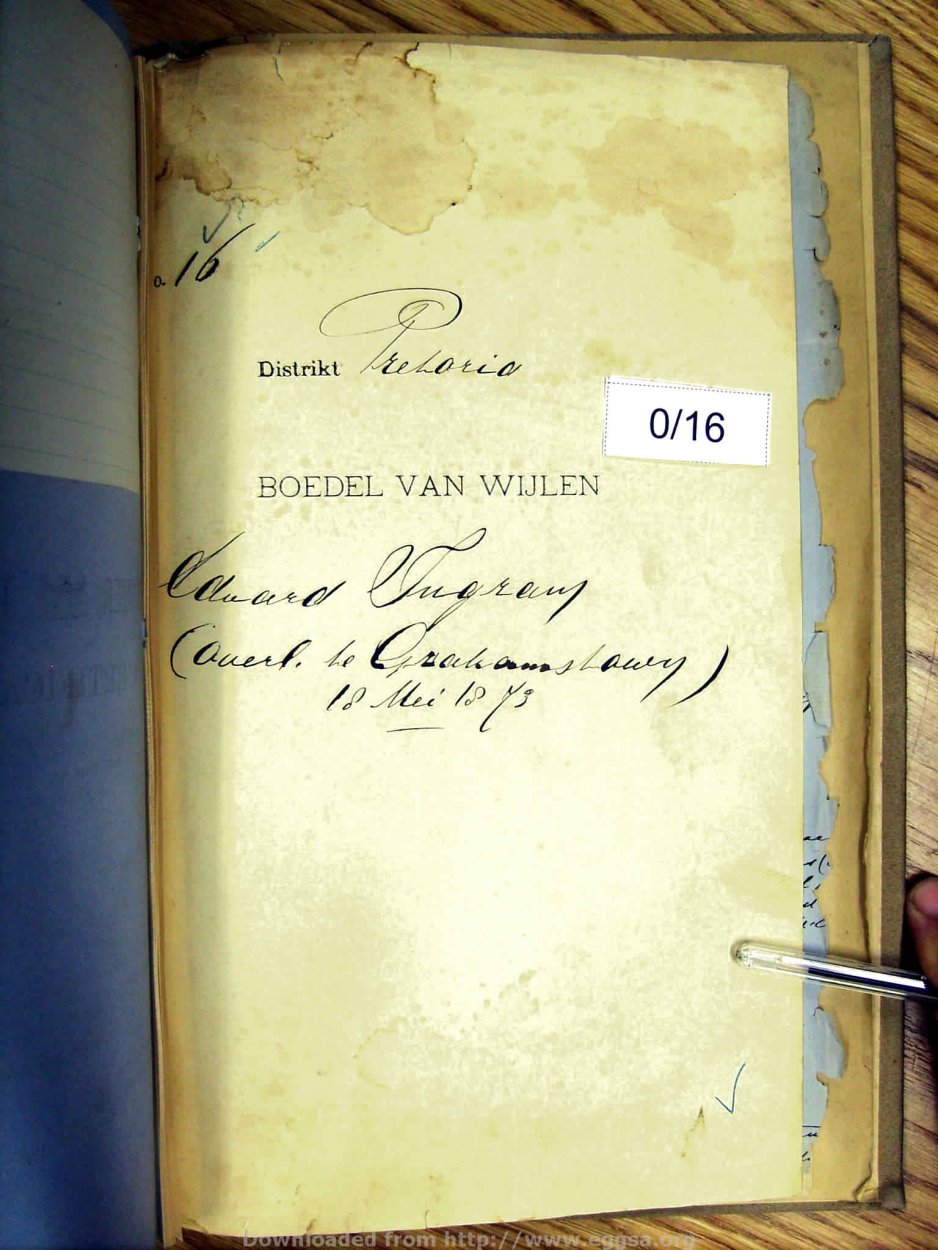 o. 16
Distrikt Pretoria
0/16
BOEDEL VAN WIJLEN
Eduard Ingram
(Overl. te Grahamstown)
18 Mei 1873
Downloaded from http://www.eggsa.org